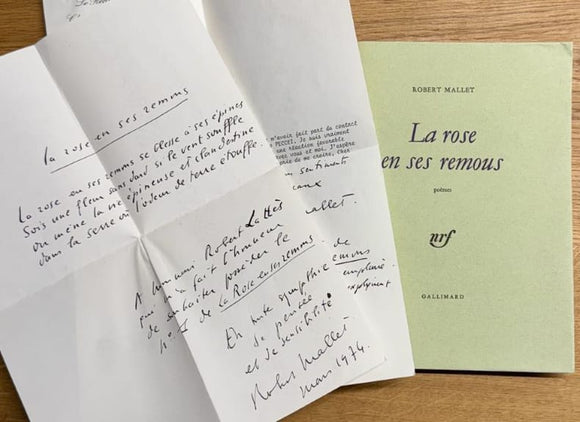 la rose en ses remous
La rose en ses remous se blesse à ses épines
Sois une fleur sans dard si le vent souffle
ou mène la vie épineuse et clandestine
dans la serre où l'odeur de terre étouffe.
A Monsieur Robert Lattès
qui m'a fait l'honneur
de souhaiter posséder le
n° 1 de La Rose en ses remous.
En toute sympathie de
de pensée
et de sensibilité
Robert Mallet
mars 1974.
m'avait fait part du contact
PECCEI. Je suis vraiment
une réaction favorable
vous et moi. J'espère
de me croire, cher
sentiments
Mallet.
ROBERT MALLET
La rose
en ses remous
poèmes
nrf
GALLIMARD